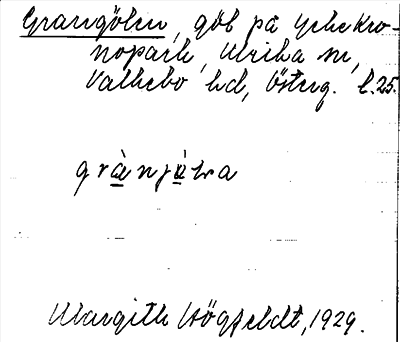 Grangölen, göl på Ycke Kro-
nopark, Ulrika sn,
Valkebo hd, Österg. l.25.
grànjə̀lna
Margith Högfeldt, 1929.